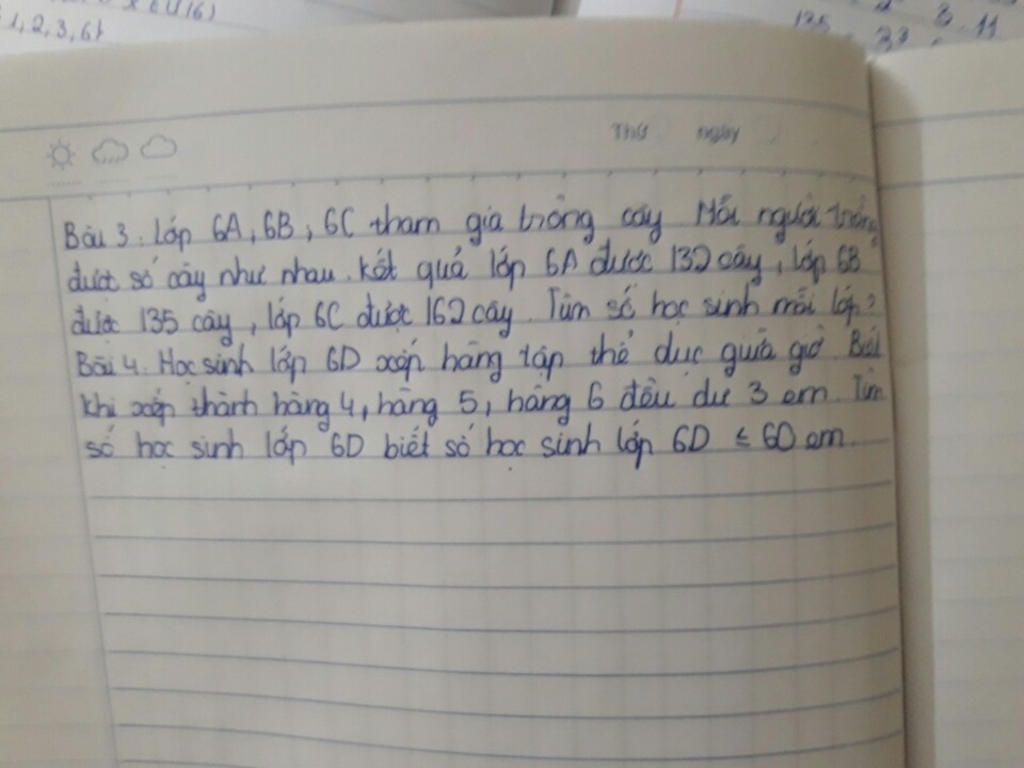 1, 2, 3, 6}
135
33
3 . 11
Thứ ngày
Bài 3: Lớp 6A, 6B, 6C tham gia trồng cây Mỗi người trồng
được số cây như nhau. Kết quả lớp 6A được 132 cây, lớp 6B
được 135 cây, lớp 6C được 162 cây. Tìm số học sinh mỗi lớp?
Bài 4. Học sinh lớp 6D xếp hàng tập thể dục giữa giờ. Biết
khi xếp thành hàng 4, hàng 5, hàng 6 đều dư 3 em. Tìm
số học sinh lớp 6D biết số học sinh lớp 6D ≤ 60 em.